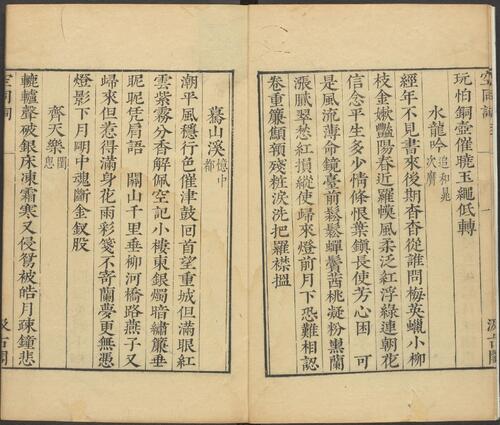 玩怕銅壺催曉玉繩低轉
水龍吟 追和晁次膺
經年不見書來後期杳杳從誰問梅英蠟小柳
枝金嫩豔陽春近羅幙風柔泛紅浮綠連朝花
信念平生多少情條恨葉鎮長使芳心困 可
是風流薄命鏡臺前鬅鬆蟬鬢茜桃凝粉熏蘭
漲膩翠愁紅損縱使歸來燈前月下恐難相認
卷重簾顦顇殘粧淚洗把羅襟搵
驀山溪 憶中都
潮平風穩行色催津鼓回首望重城但滿眼紅
雲紫霧分香解佩空記小樓東銀燭暗繡簾垂
昵昵凭肩語 關山千里垂柳河橋路燕子又
歸來但惹得滿身花雨彩箋不寄蘭夢更無憑
燈影下月明中魂斷金釵股
齊天樂 閨思
轆轤聲破銀床凍霜寒又侵鴛被皓月疎鐘悲